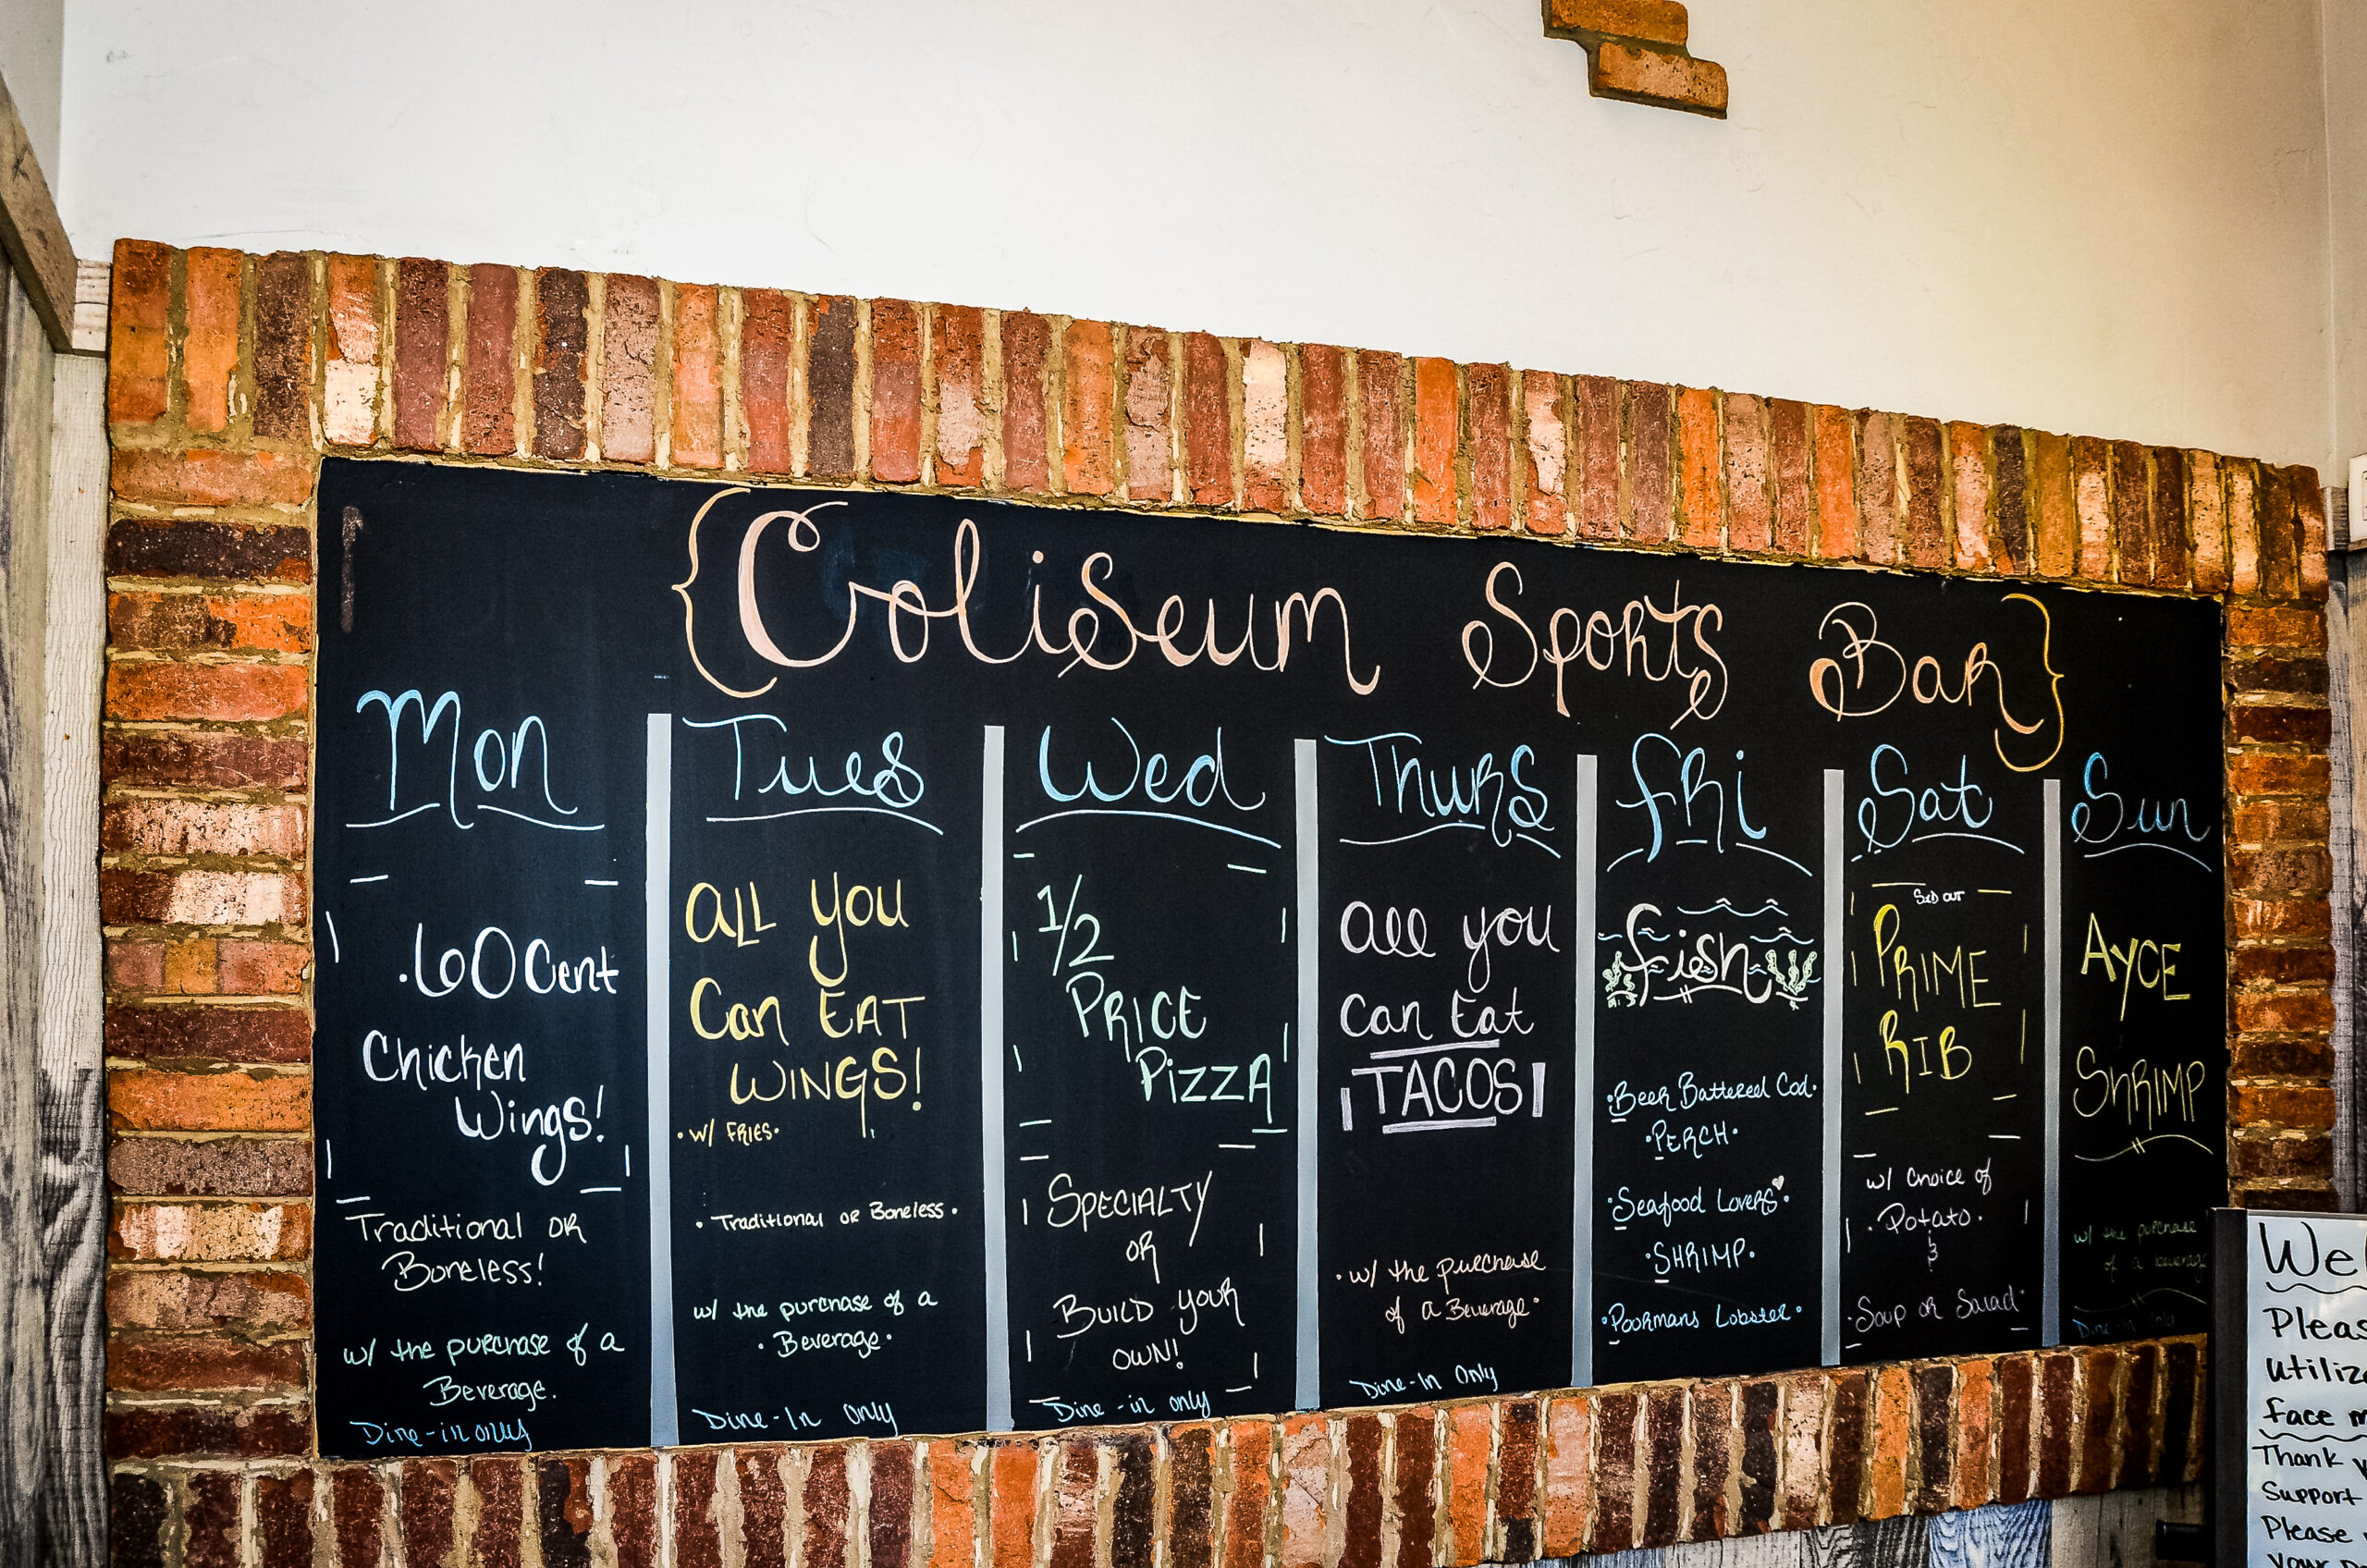 {Coliseum Sports Bar}
Mon
.60 Cent
Chicken
Wings!
Traditional or
Boneless!
w/ the purchase of a
Beverage.
Dine-in only
Tues
ALL you
Can EAT
WINGS!
• w/ FRIES •
• Traditional or Boneless •
w/ the purchase of a
• Beverage •
Dine-In Only
Wed
1/2
PRICE
PIZZA
SPECIALTY
OR
BUILD YOUR
OWN!
Dine-in only
Thurs
all you
can Eat
TACOS
• w/ the purchase
of a Beverage •
Dine-In Only
FRI
Fish
• Beer Battered Cod •
• PERCH •
• Seafood Lovers •
• SHRIMP •
• Poormans Lobster •
Sat
Sold out
PRIME
RIB
w/ choice of
• Potato •
&
• Soup or Salad •
Sun
AYCE
SHRIMP
w/ the purchase
of a beverage
Dine-in Only
Please
face
Thank
Support
Please